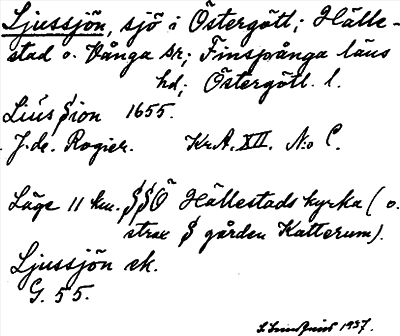 Ljussjön, sjö i Östergötl.; Hälle-
stad o. Vånga sk; Finspånga läns
hd; Östergötl. l.
Liús Sion 1655.
J. de. Rogier. Kr.A. XII. N:o C.
Läge 11 km. SSÖ Hällestads kyrka (o.
strax S gården Katterum).
Ljussjön ek.
G. 55.
1937.